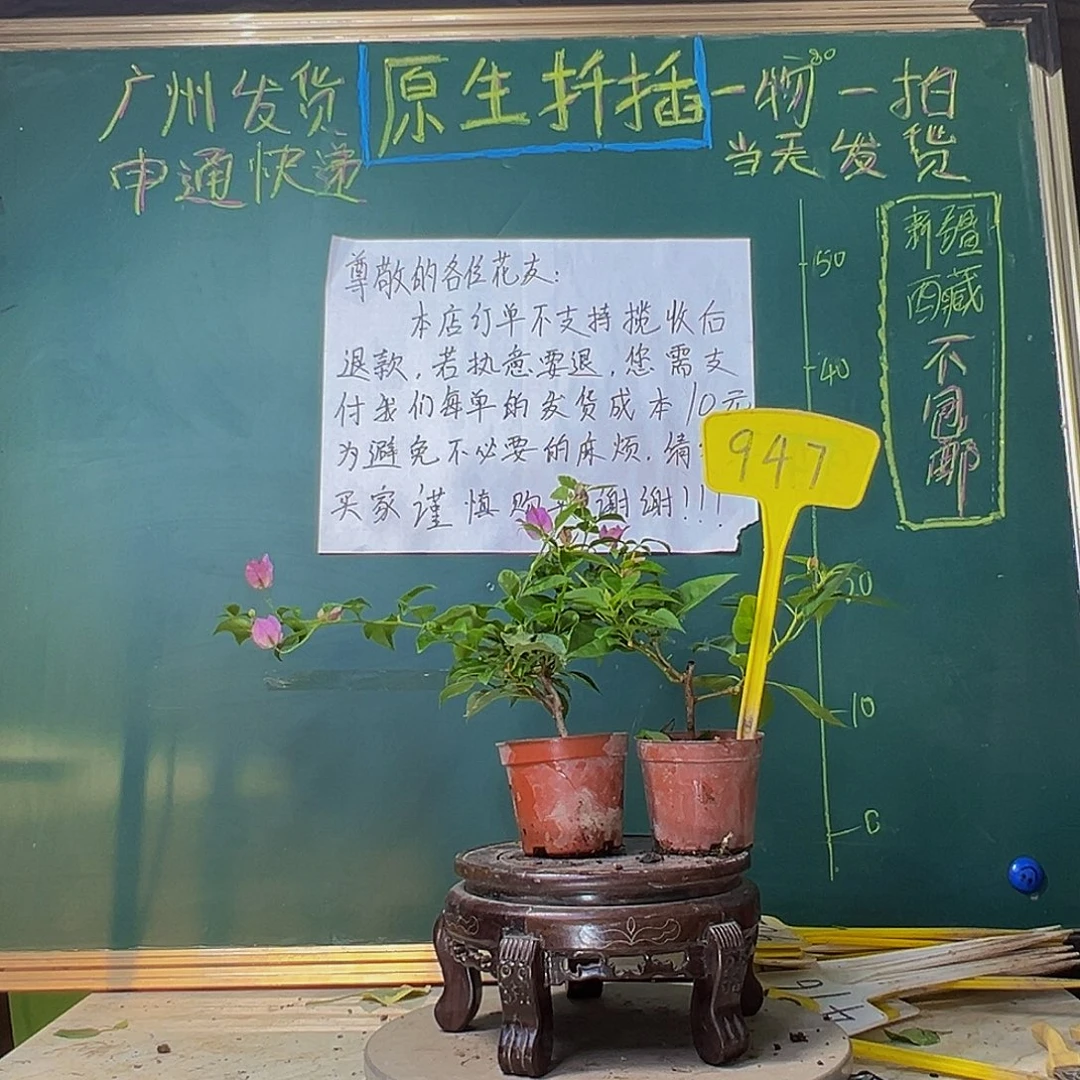 广州发货
申通快递
原生扦插
一物一拍
当天发货
新疆
西藏
不包邮
尊敬的各位花友:
本店订单不支持揽收后
退款,若执意要退,您需支
付我们每单的发货成本10元
为避免不必要的麻烦.请
买家谨慎购 谢谢!!!
947
50
40
20
10
0